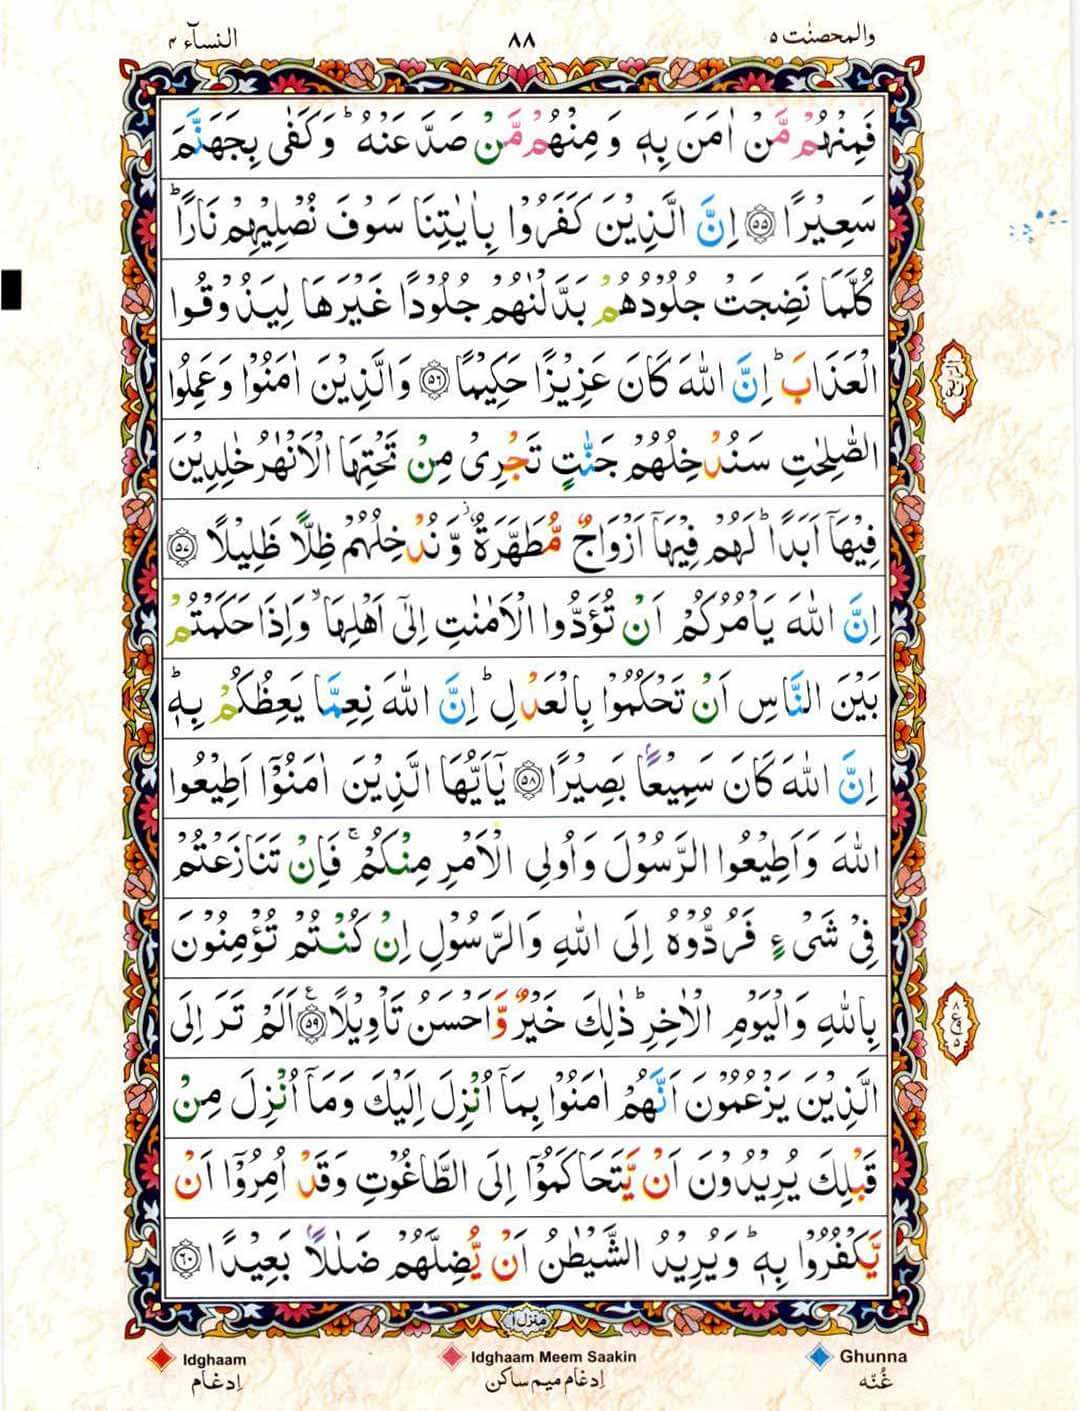 والمحصنٰت ٥
٨٨
النسآء ٤
فَمِنْهُمْ مَّنْ اٰمَنَ بِهٖ وَ مِنْهُمْ مَّنْ صَدَّ عَنْهُ ؕ وَكَفٰى بِجَهَنَّمَ
سَعِيْرًا ﴿٥٥﴾ اِنَّ الَّذِيْنَ كَفَرُوْا بِاٰيٰتِنَا سَوْفَ نُصْلِيْهِمْ نَارًا ؕ
كُلَّمَا نَضِجَتْ جُلُوْدُهُمْ بَدَّلْنٰهُمْ جُلُوْدًا غَيْرَهَا لِيَذُوْقُوا
الْعَذَابَ ؕ اِنَّ اللّٰهَ كَانَ عَزِيْزًا حَكِيْمًا ﴿٥٦﴾ وَالَّذِيْنَ اٰمَنُوْا وَعَمِلُوا
الصّٰلِحٰتِ سَنُدْخِلُهُمْ جَنّٰتٍ تَجْرِىْ مِنْ تَحْتِهَا الْاَنْهٰرُ خٰلِدِيْنَ
فِيْهَاۤ اَبَدًا ؕ لَهُمْ فِيْهَاۤ اَزْوَاجٌ مُّطَهَّرَةٌ ز وَّنُدْخِلُهُمْ ظِلًّا ظَلِيْلًا ﴿٥٧﴾
اِنَّ اللّٰهَ يَاْمُرُكُمْ اَنْ تُؤَدُّوا الْاَمٰنٰتِ اِلٰٓى اَهْلِهَا ۙ وَاِذَا حَكَمْتُمْ
بَيْنَ النَّاسِ اَنْ تَحْكُمُوْا بِالْعَدْلِ ؕ اِنَّ اللّٰهَ نِعِمَّا يَعِظُكُمْ بِهٖ ؕ
اِنَّ اللّٰهَ كَانَ سَمِيْعًۢا بَصِيْرًا ﴿٥٨﴾ يٰۤاَيُّهَا الَّذِيْنَ اٰمَنُوْۤا اَطِيْعُوا
اللّٰهَ وَاَطِيْعُوا الرَّسُوْلَ وَاُولِى الْاَمْرِ مِنْكُمْ ۚ فَاِنْ تَنَازَعْتُمْ
فِىْ شَىْءٍ فَرُدُّوْهُ اِلَى اللّٰهِ وَالرَّسُوْلِ اِنْ كُنْتُمْ تُؤْمِنُوْنَ
بِاللّٰهِ وَالْيَوْمِ الْاٰخِرِ ؕ ذٰلِكَ خَيْرٌ وَّاَحْسَنُ تَاْوِيْلًا ﴿٥٩﴾ ع اَلَمْ تَرَ اِلَى
الَّذِيْنَ يَزْعُمُوْنَ اَنَّهُمْ اٰمَنُوْا بِمَاۤ اُنْزِلَ اِلَيْكَ وَمَاۤ اُنْزِلَ مِنْ
قَبْلِكَ يُرِيْدُوْنَ اَنْ يَّتَحَاكَمُوْۤا اِلَى الطَّاغُوْتِ وَقَدْ اُمِرُوْۤا اَنْ
يَّكْفُرُوْا بِهٖ ؕ وَيُرِيْدُ الشَّيْطٰنُ اَنْ يُّضِلَّهُمْ ضَلٰلًۢا بَعِيْدًا ﴿٦٠﴾
الربع
٨
ع
٥
منزل ١
Idghaam
اِدغام
Idghaam Meem Saakin
اِدغام میم ساکن
Ghunna
غُنّه